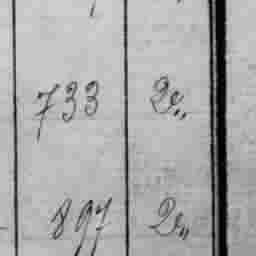 733 2e„
897 2e„